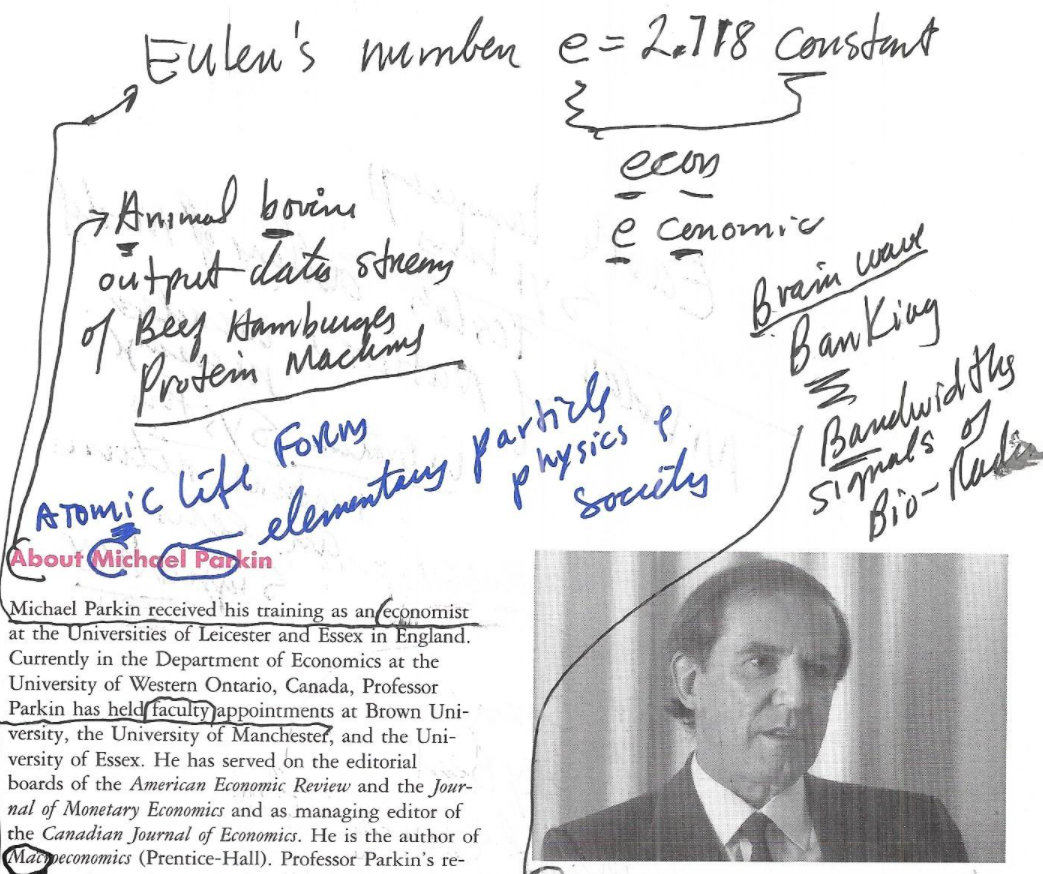 Euler's number e = 2.718 constant
econ
e conomic
Animal bovine
output data stream
of Beef Hamburger
Protein Machines
Brain wave
Banking
Bandwidths
signals of
Bio-
ATOMIC Life Form
elementary particle
physics e
society
About Michael Parkin
Michael Parkin received his training as an economist
at the Universities of Leicester and Essex in England.
Currently in the Department of Economics at the
University of Western Ontario, Canada, Professor
Parkin has held faculty appointments at Brown Uni-
versity, the University of Manchester, and the Uni-
versity of Essex. He has served on the editorial
boards of the American Economic Review and the Jour-
nal of Monetary Economics and as managing editor of
the Canadian Journal of Economics. He is the author of
Macroeconomics (Prentice-Hall). Professor Parkin's re-